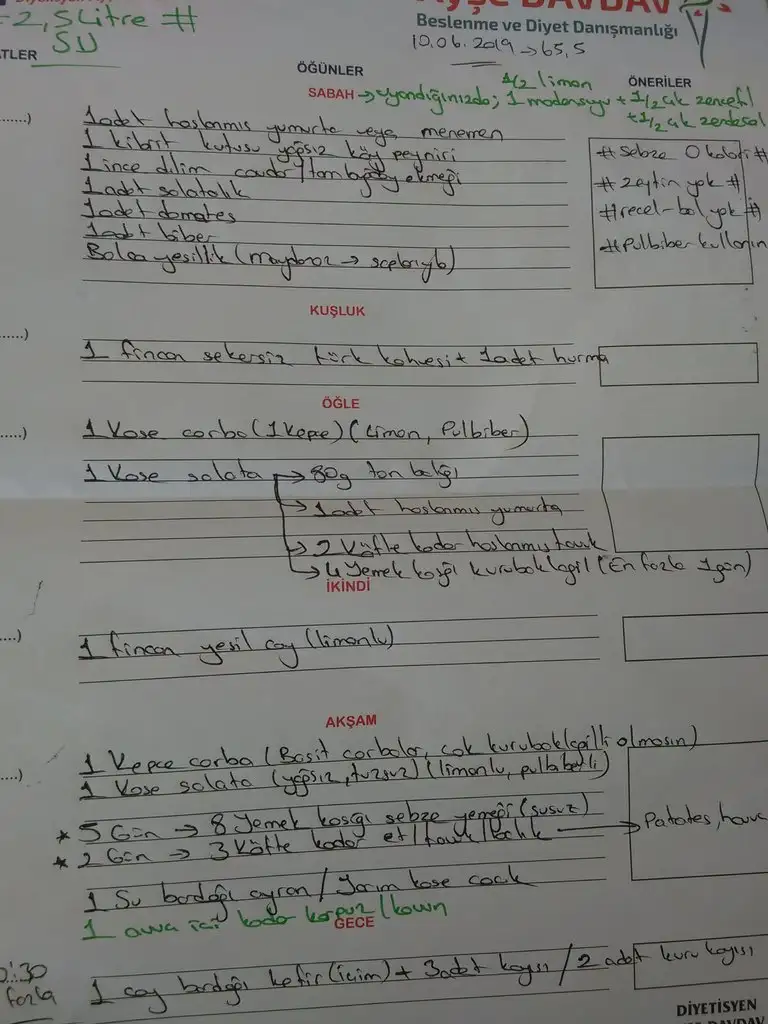 Beslenme ve Diyet Danışmanlığı
2,5 Litre #
SU
10.06.2019 → 65,5
ÖĞÜNLER
ÖNERİLER
SABAH → uyandığınızda; 1 madensuyu + 1/2 limon + 1/2 çk zencefil
+ 1/2 çk zerdeçal
1 adet haşlanmış yumurta veya menemen
1 kibrit kutusu yağsız köy peyniri
1 ince dilim çavdar / tam buğday ekmeği
1 adet salatalık
1 adet domates
1 adet biber
Bolca yeşillik (maydanoz →
# Sebze 0 kalori #
# zeytin yok #
# reçel-bal yok #
# Pulbiber kullanın
KUŞLUK
1 fincan şekersiz türk kahvesi + 1 adet hurma
ÖĞLE
1 Kase çorba (1 Kepçe) (Limon, Pulbiber)
1 Kase salata → 80g ton balığı
→ 1 adet haşlanmış yumurta
→ 2 Köfte kadar haşlanmış tavuk
→ 4 Yemek kaşığı kurubaklagil (En fazla 1 gün)
İKİNDİ
1 fincan yeşil çay (limonlu)
AKŞAM
1 Kepçe çorba (Basit çorbalar, çok kurubaklagilli olmasın)
1 Kase salata (yağsız, tuzsuz) (limonlu, pulbiberli)
* 5 Gün → 8 Yemek kaşığı sebze yemeği (susuz)
* 2 Gün → 3 Köfte kadar et / tavuk / balık → Patates, havuç
1 Su bardağı ayran / Yarım kase cacık
1 avuç içi kadar karpuz / kavun
GECE
1 çay bardağı kefir (içim) + 3 adet kayısı / 2 adet kuru kayısı
:30
fazla
DİYETİSYEN